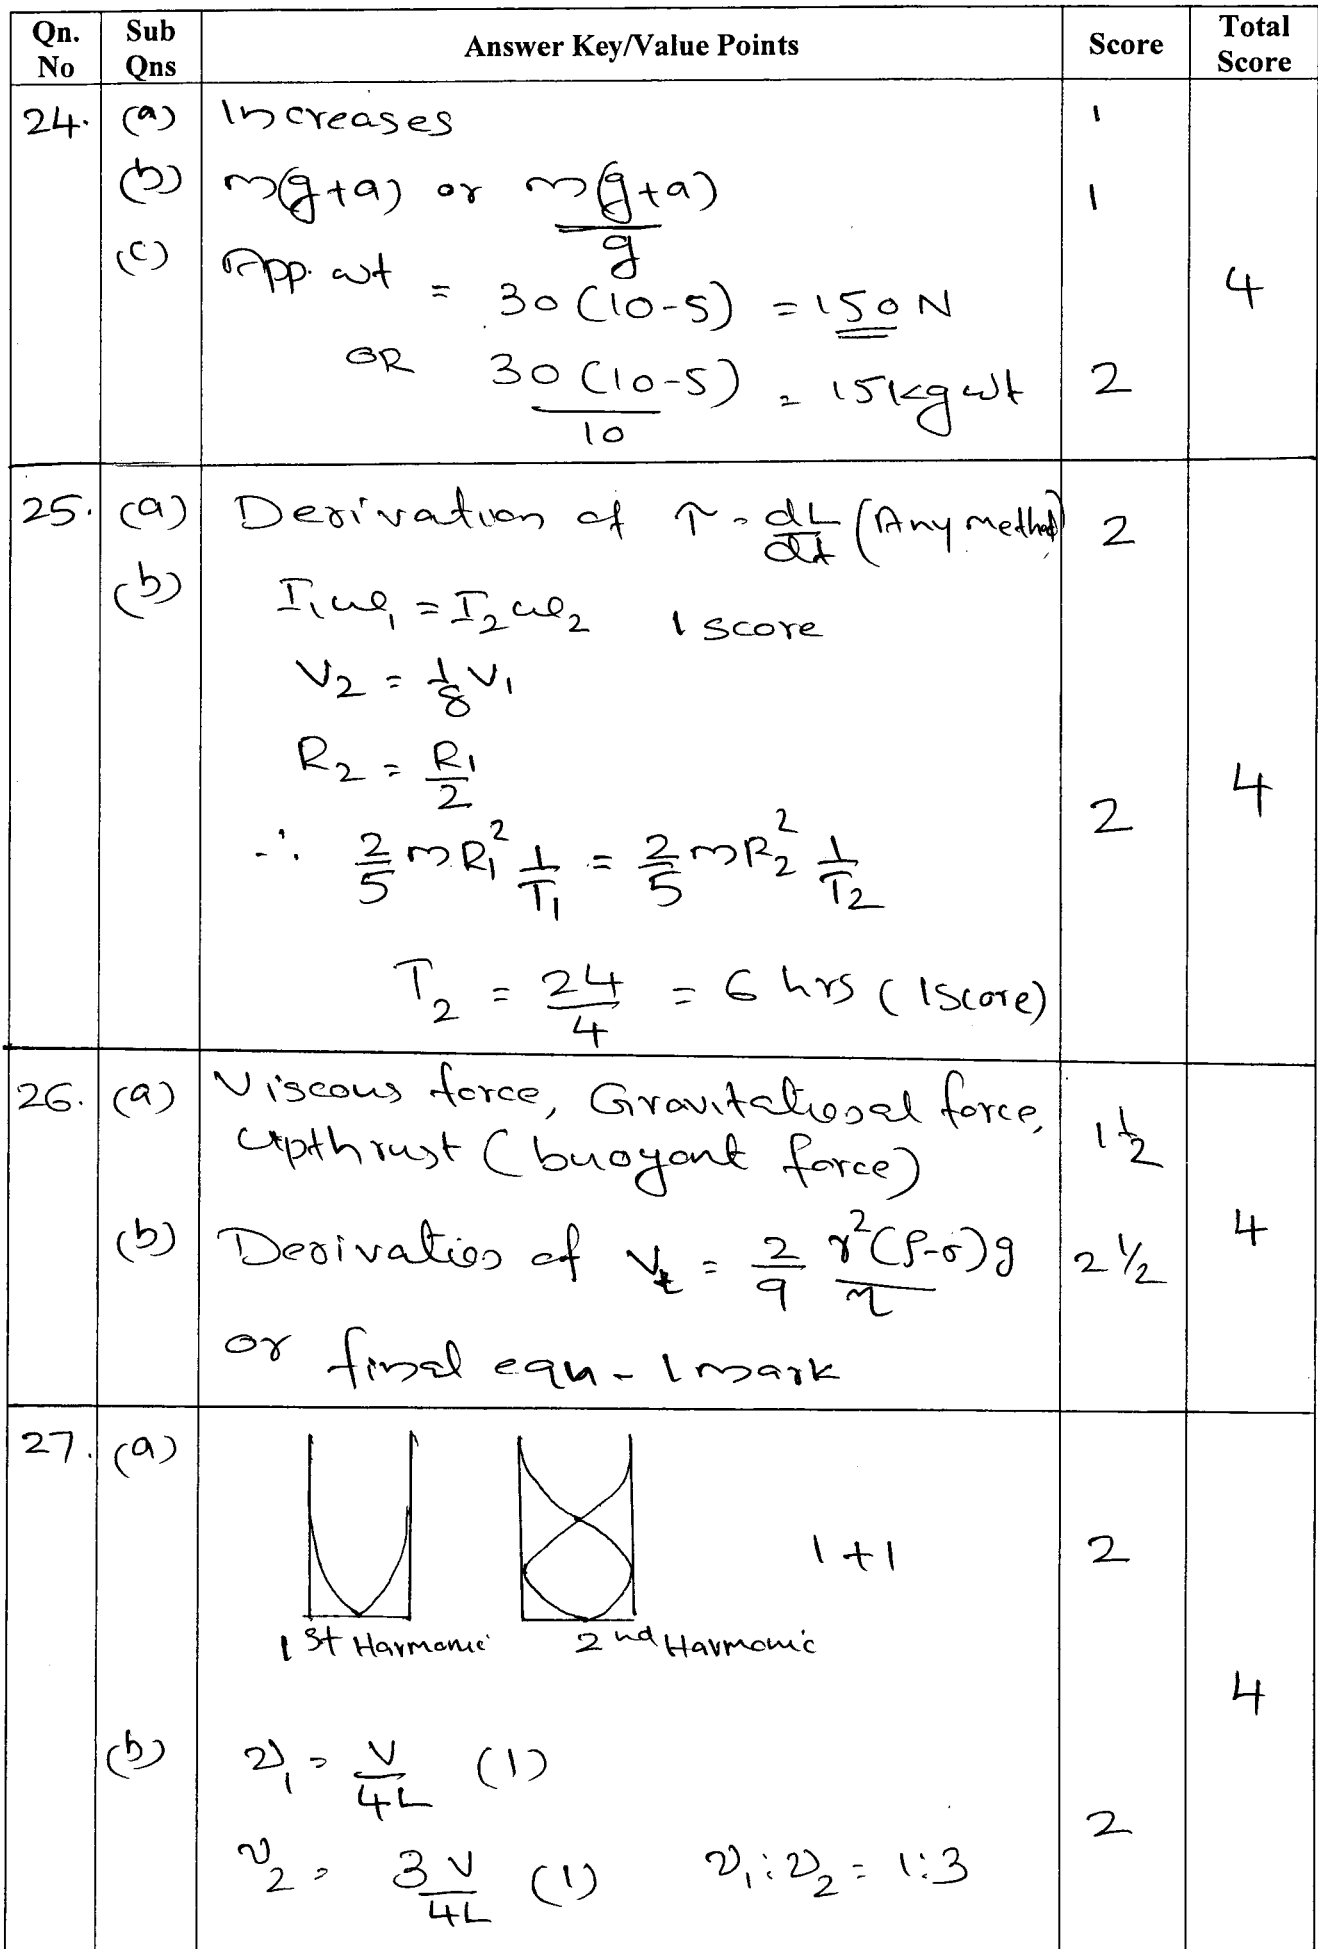 Qn. No | Sub Qns | Answer Key/Value Points | Score | Total Score
24. (a) Increases 1
(b) m(g+a) or m(g+a)/g 1
(c) App. wt = 30(10-5) = 150 N
OR 30(10-5)/10 = 15kg wt 2
4
25. (a) Derivation of τ = dL/dt (Any method) 2
(b) I₁ω₁ = I₂ω₂ 1 score
V₂ = 1/8 V₁
R₂ = R₁/2
∴ 2/5 mR₁² 1/T₁ = 2/5 mR₂² 1/T₂ 2
T₂ = 24/4 = 6 hrs (1score)
4
26. (a) Viscous force, Gravitational force, 1½
Upthrust (buoyant force)
(b) Derivation of Vt = 2/9 r²(ρ-σ)g/η 2½
or final eqn - 1 mark
4
27. (a) 1+1 2
1st Harmonic 2nd Harmonic
(b) ν₁ = V/4L (1)
ν₂ = 3V/4L (1) ν₁:ν₂ = 1:3 2
4